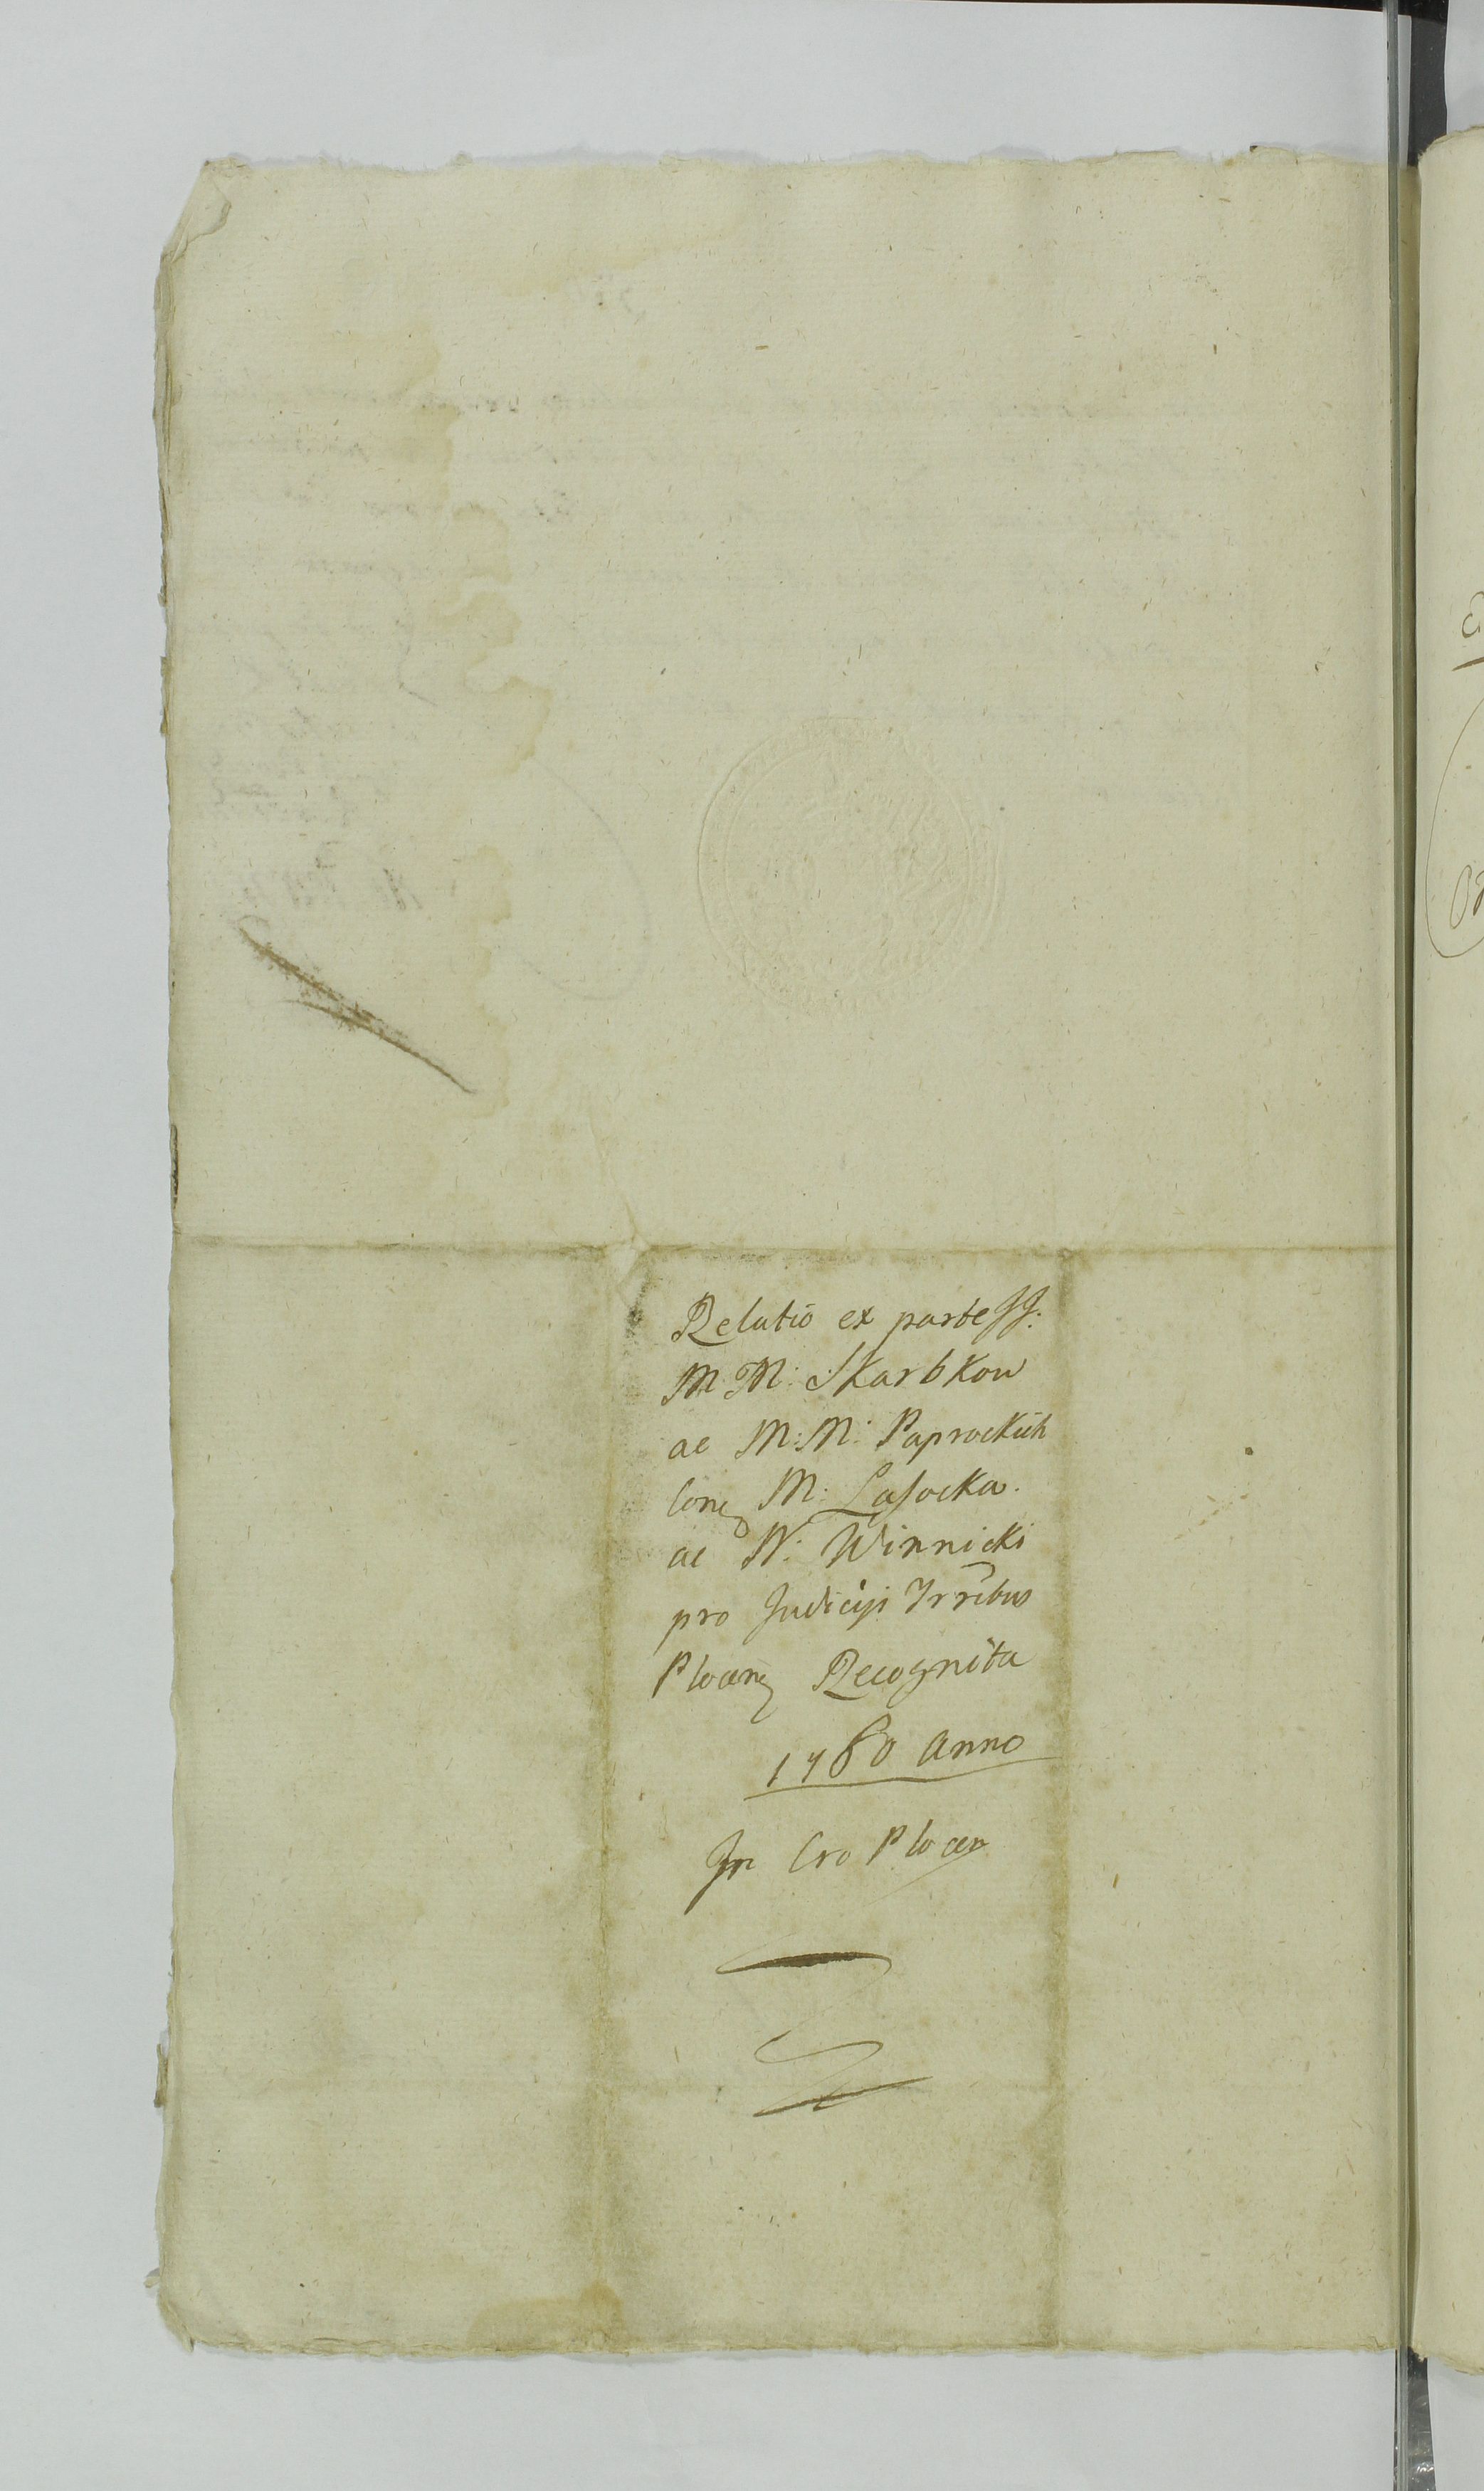 Relatio ex parte JJ.
M M: Skarbkow
ac M: M: Paprockich
Cong M: Lasocka.
ac N: Winnicki
pro Judicijs Trribus
Ploceng Recognita
1780 anno
In Cro Plocen